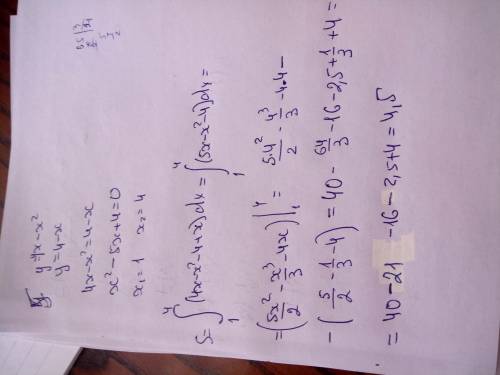 y=4x-x²
y=4-x
4x-x²=4-x
x²-5x+4=0
x₁=1 x₂=4
S=∫₁⁴(4x-x²-4+x)dx=∫₁⁴(5x-x²-4)dx=
=(5x²/2-x³/3-4x)|₁⁴= 5·4²/2-4³/3-4·4-
-(5/2-1/3-4)=40-64/3-16-2,5+1/3+4=
=40-21-16-2,5+4=4,5